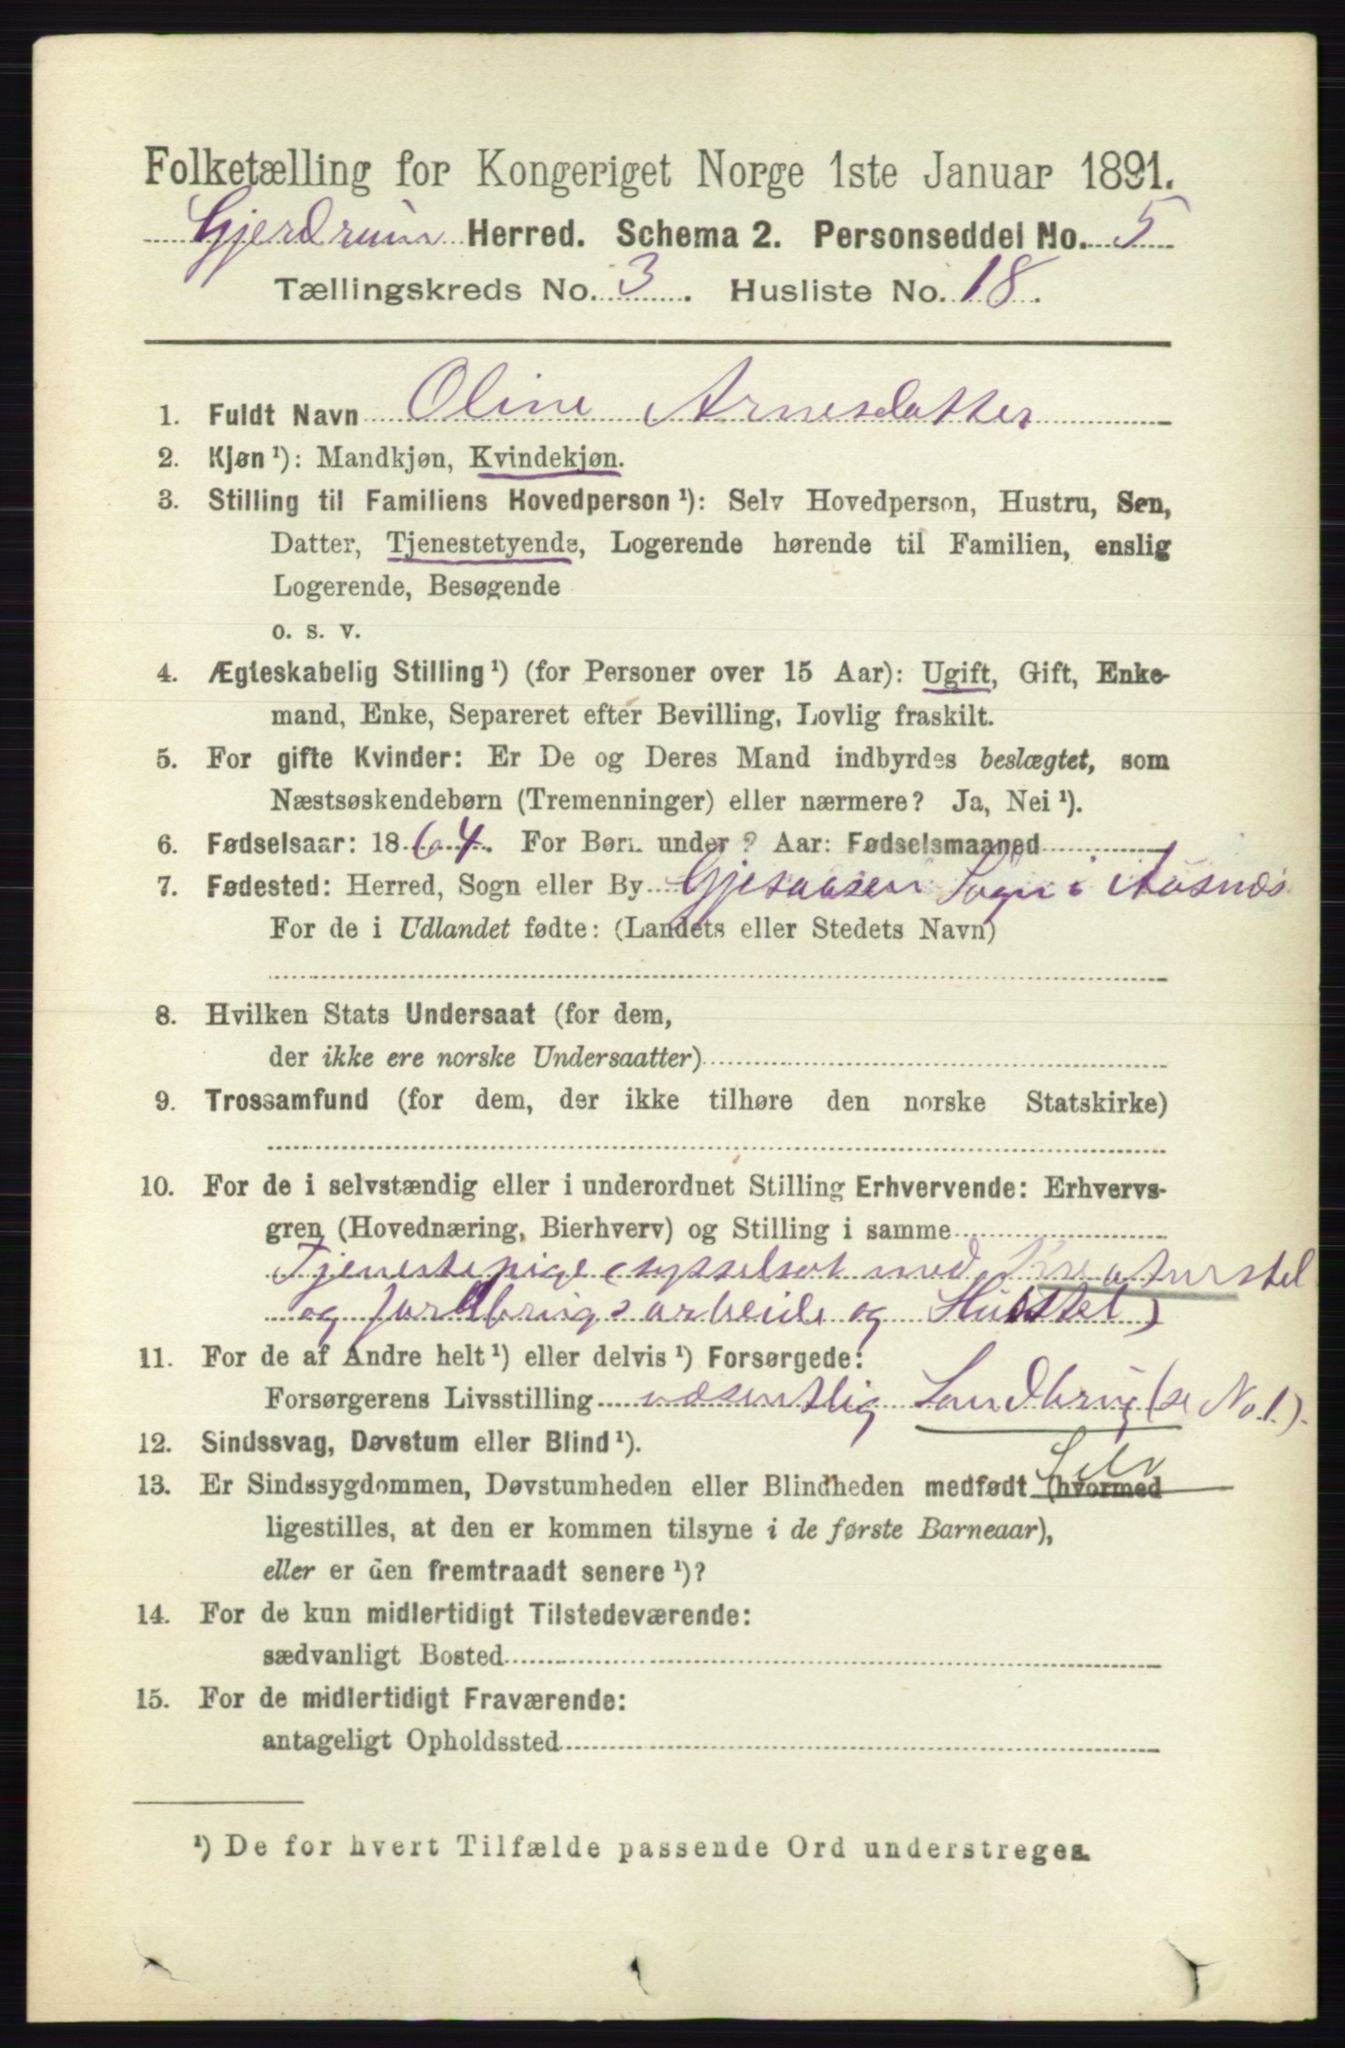 Folketælling for Kongeriget Norge 1ste Januar 1891.
Gjerdrum Herred. Schema 2. Personseddel No. 5
Tællingskreds No. 3. Husliste No. 18.
1. Fuldt Navn Oline Arnesdatter
2. Kjøn ¹): Mandkjøn, Kvindekjøn.
3. Stilling til Familiens Hovedperson ¹): Selv Hovedperson, Hustru, Søn,
Datter, Tjenestetyende, Logerende hørende til Familien, enslig
Logerende, Besøgende
o. s. v.
4. Ægteskabelig Stilling ¹) (for Personer over 15 Aar): Ugift, Gift, Enke-
mand, Enke, Separeret efter Bevilling, Lovlig fraskilt.
5. For gifte Kvinder: Er De og Deres Mand indbyrdes beslægtet, som
Næstsøskendebørn (Tremenninger) eller nærmere? Ja, Nei ¹).
6. Fødselsaar: 1864. For Børn under 2 Aar: Fødselsmaaned
7. Fødested: Herred, Sogn eller By Gjesaasen Sogn i Aasnæs
For de i Udlandet fødte: (Landets eller Stedets Navn)
8. Hvilken Stats Undersaat (for dem,
der ikke ere norske Undersaatter)
9. Trossamfund (for dem, der ikke tilhøre den norske Statskirke)
10. For de i selvstændig eller i underordnet Stilling Erhvervende: Erhvervs-
gren (Hovednæring, Bierhverv) og Stilling i samme
Tjenestepige (sysselsat med Kreaturstel
og jordbrugsarbeide og Husstel)
11. For de af Andre helt ¹) eller delvis ¹) Forsørgede:
Forsørgerens Livsstilling væsentlig Landbrug (se No. 1).
12. Sindssvag, Døvstum eller Blind ¹).
Selv
13. Er Sindssygdommen, Døvstumheden eller Blindheden medfødt (hvormed
ligestilles, at den er kommen tilsyne i de første Barneaar),
eller er den fremtraadt senere ¹)?
14. For de kun midlertidigt Tilstedeværende:
sædvanligt Bosted
15. For de midlertidigt Fraværende:
antageligt Opholdssted
¹) De for hvert Tilfælde passende Ord understreges.